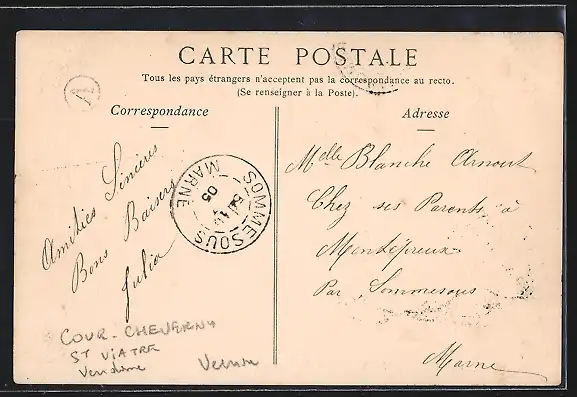 CARTE POSTALE
Tous les pays étrangers n'acceptent pas la correspondance au recto.
(Se renseigner à la Poste).
Correspondance
Amitiés Sincères
Bons Baisers
Julia
SOMMESOUS
MARNE
05
COUR-CHEVERNY
ST VIATRE
Vendome
Adresse
Melle Blanche Arnout
Chez ses Parents à
Montépreux
Par Sommesous
Marne